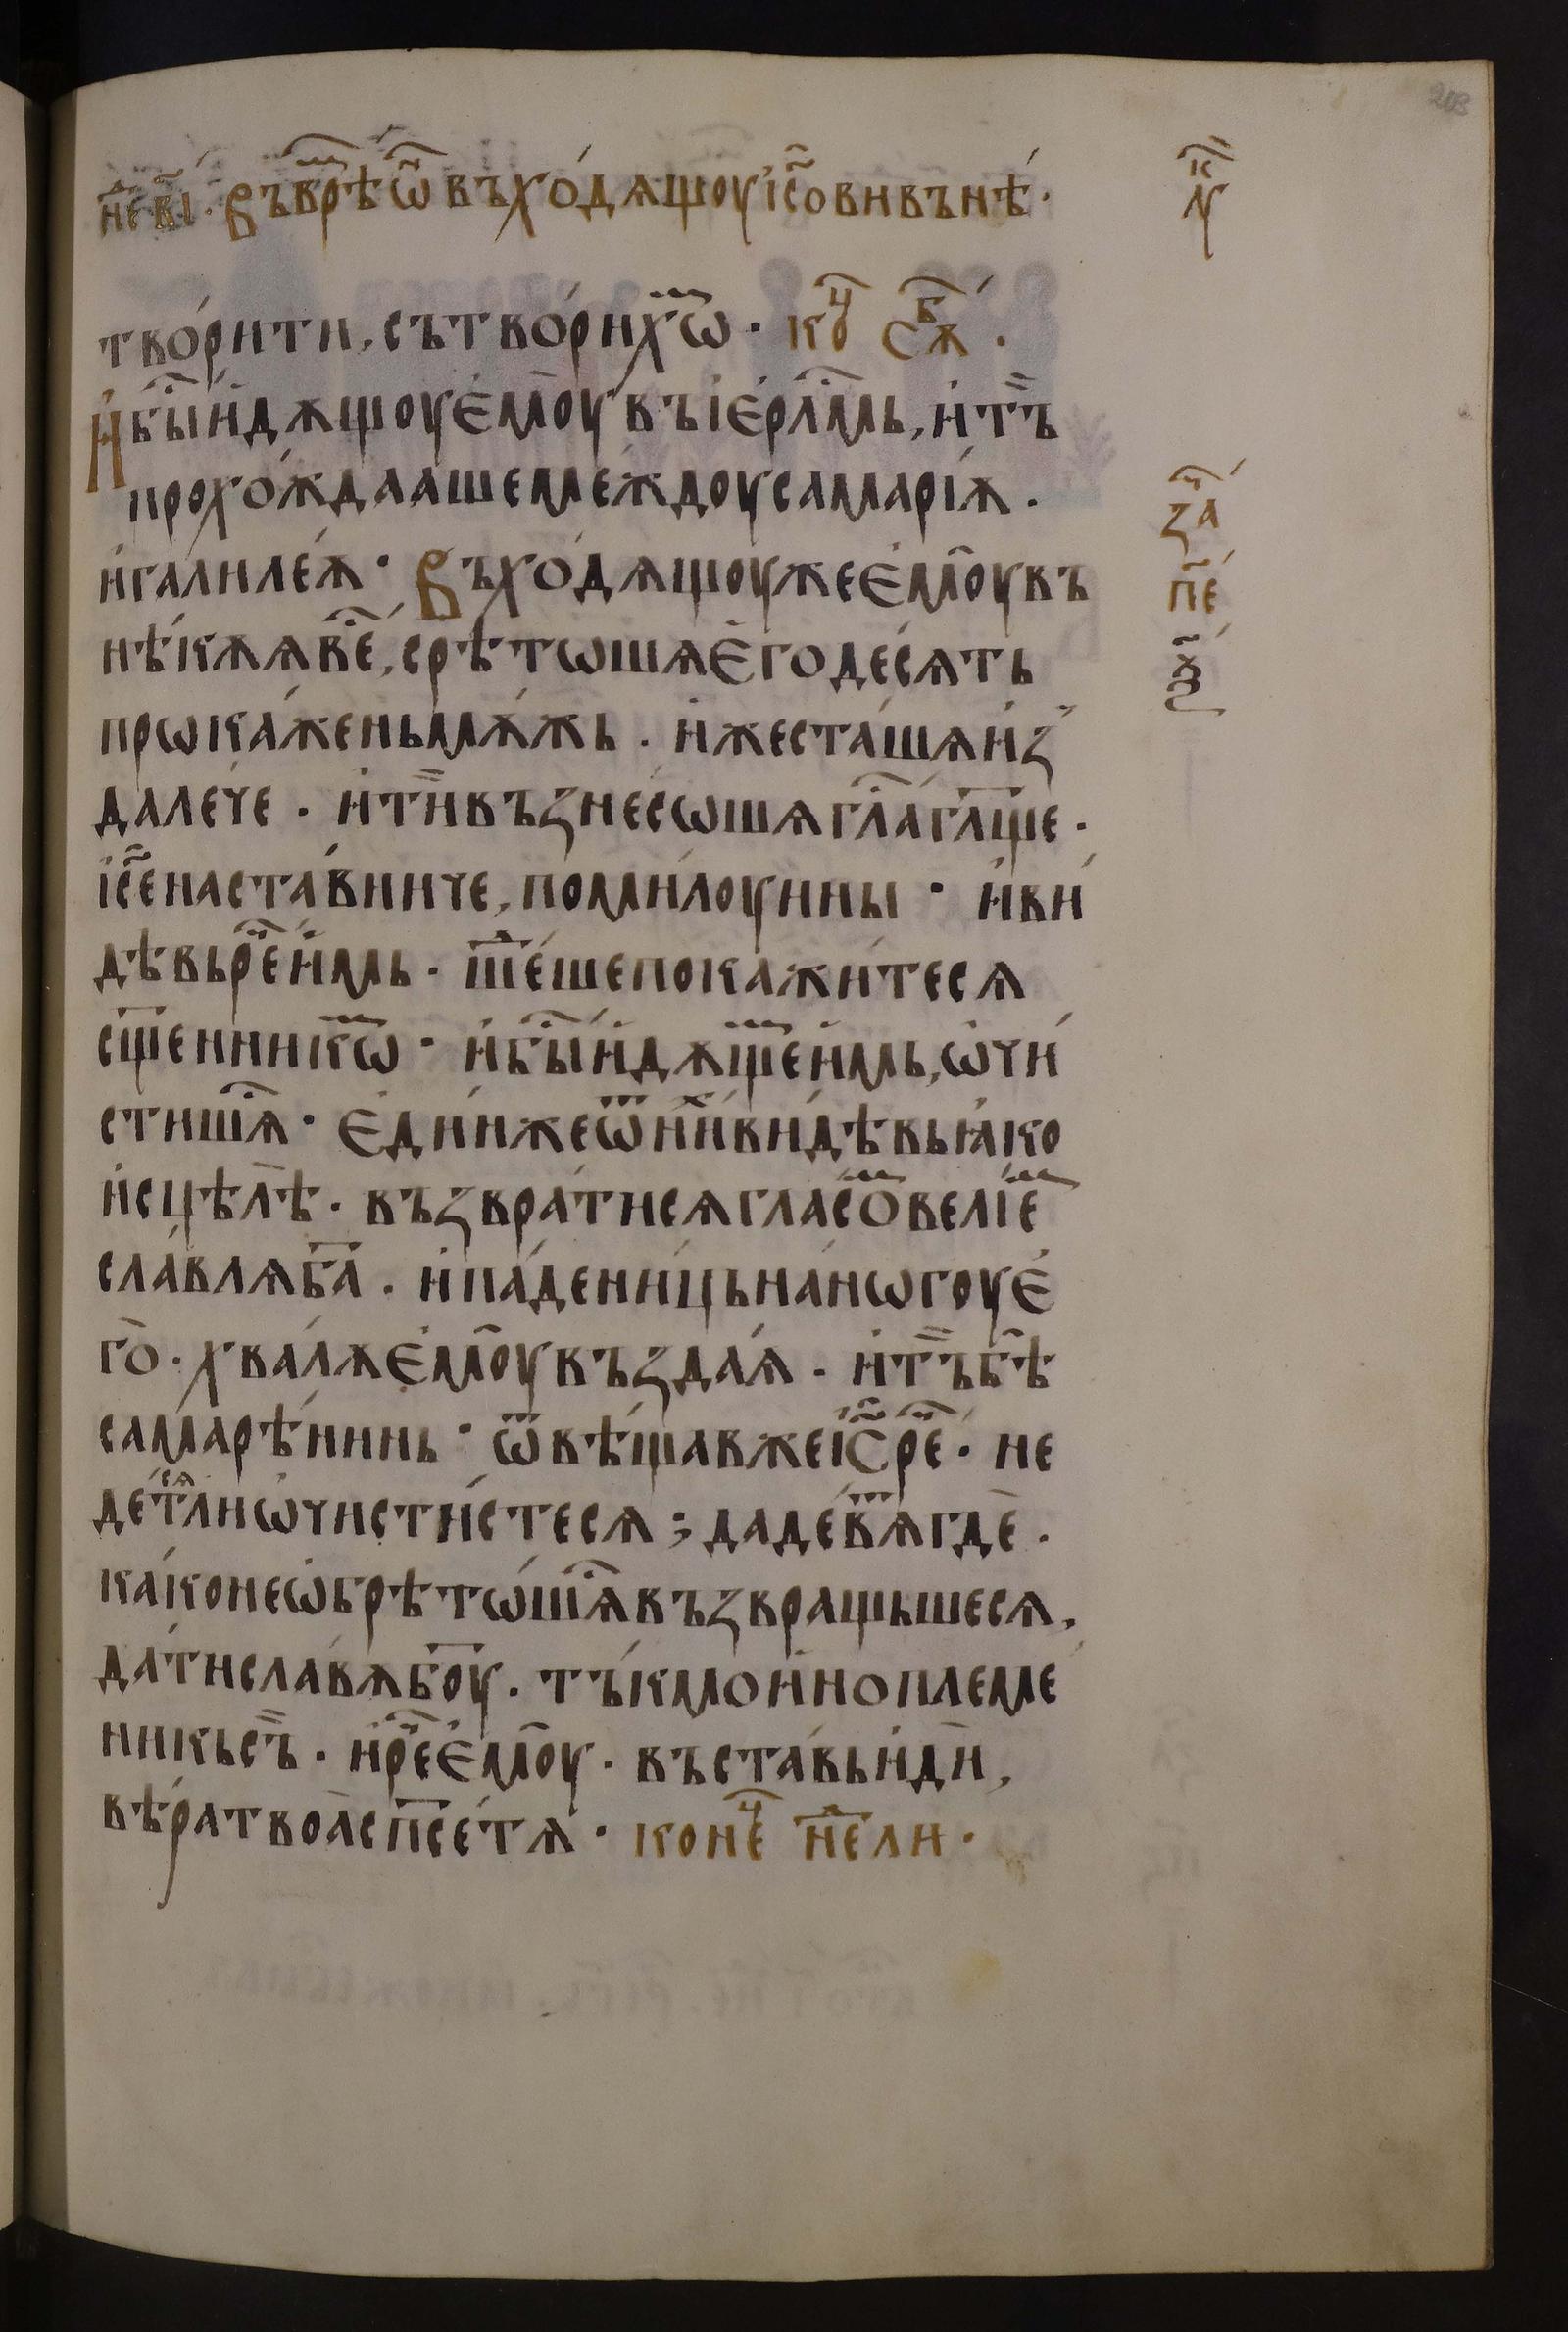 не҃ в҃і · Въ врѣ́мѡ҃ въходѧщоу і҃сови въ нѣ́ ·
л҃к
творити, сътво́рихѡⷨ · коⷰ҇ сѫⷠ҇ ·
И҆ быⷭ҇ и҆дѫщоу є҆моу въ і҆єрⷭ҇лмь, и҆ тъ̏
прохо́ждааше ме́ждоу самарі́ѫ ·
за҇ⷱ
и҆ галиле́ѫ · Въхо́дѧщоу же є҆моу въ
п҃е
нѣ́кѫѧ ве́ⷭ҇, срѣтошѧ є҆го де́сѧть
ѯ
прѡка́жень мѫ́жь · и҆же ста́шѧ и҆з̾
дале́че · и҆ ти̏ възне́сѡшѧ глⷭ҇а гл҃ще ·
і҆с҃е наста́вниче, поми́лоуи ны · и҆ ви́
дѣвь реⷱ҇ и҆мь · шеⷣ́ше покажи́те сѧ
сщ҃енникѡⷨ · и҆ быⷭ҇ и҆дѫщеⷨ и҆мь, ѡ҆чи́
стишѧⷭ҇ · є҆ди́н же ѿ ни́ⷯ ви́дѣвь ꙗ҆ко
и҆сцѣлѣ̀ · възврати сѧ гла́соⷨ велі́еⷨ
сла́влѧ б҃а · и҆ па́де ни́ць на ногоу є҆
го̀ · хва́лѫ є҆моу възда́ѧ · и҆ тъ̏ бѣ̀
самарѣ́нинь · ѿвѣ́щав же і҆с҃ реⷱ҇ · не
де́сѧт ли ѡ҆чисти́сте сѧ ; да де́вѧⷮ гдѐ ·
ка́ко не ѡ҆брѣто́шѧⷭ҇ възвращьше сѧ,
да́ти сла́вѫ б҃оу · тъ́кмо и҆ноплеме
никь съ̏ · и҆ реⷱ҇ є҆моу · въста́вь и҆ди̏,
вѣ́ра твоа̀ сп҃се́ тѧ · конеⷰ҇ неⷣли ·